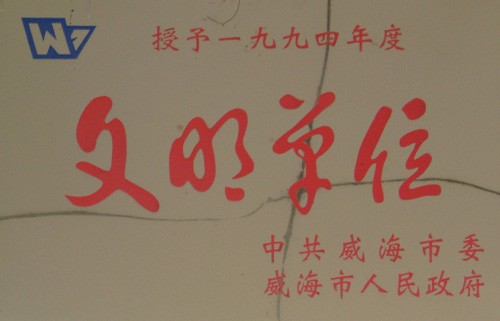 授予一九九四年度
文明单位
中共威海市委
威海市人民政府